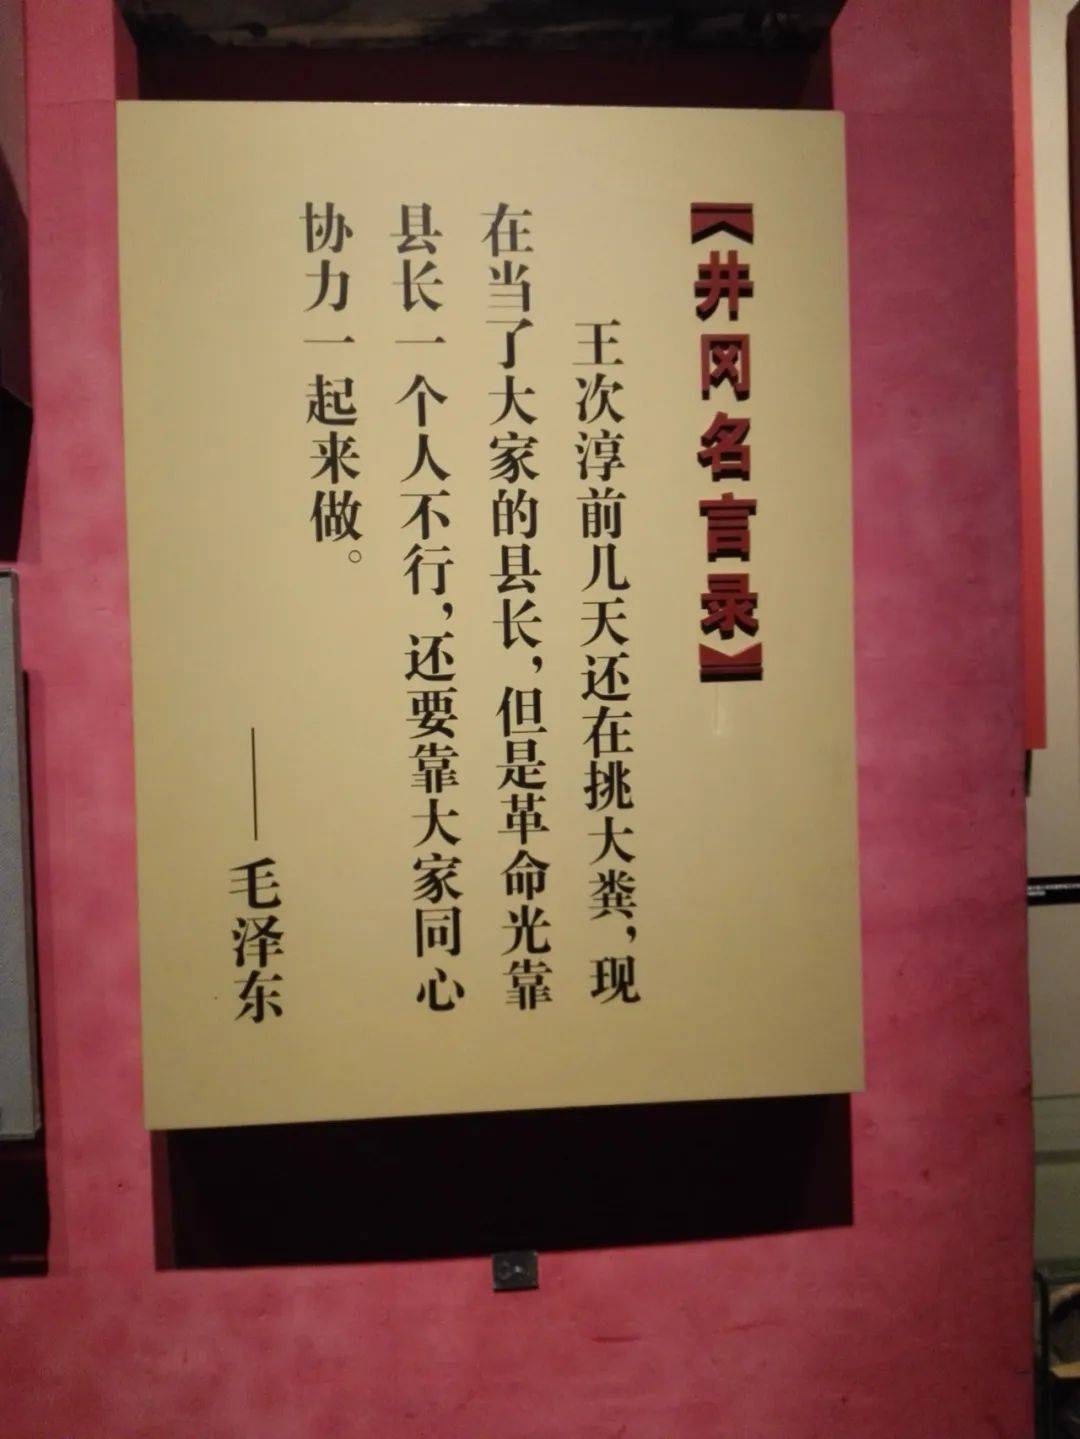 【井冈名言录】
王次淳前几天还在挑大粪，现
在当了大家的县长，但是革命光靠
县长一个人不行，还要靠大家同心
协力一起来做。
——毛泽东